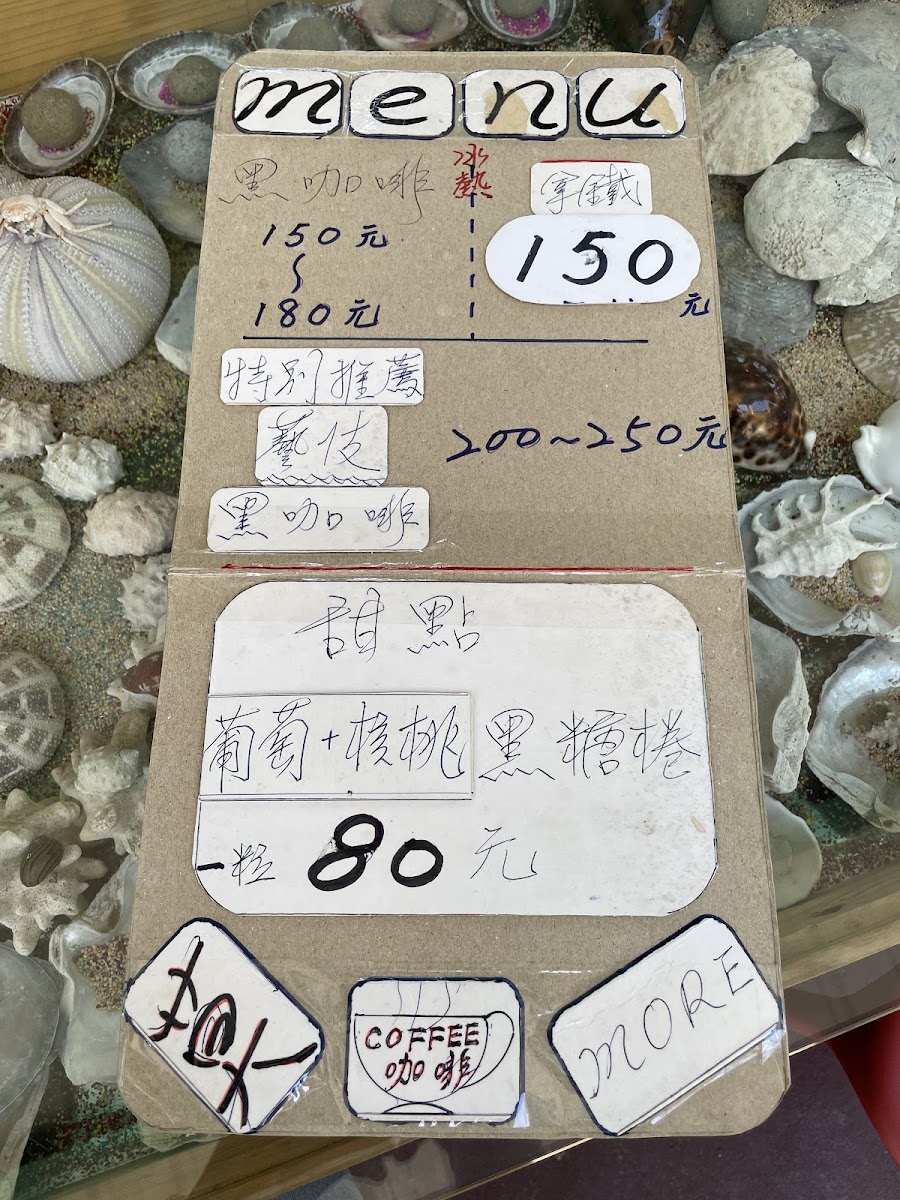 menu
黑咖啡
150元
~
180元
冰
熱
拿鐵
150
元
特別推薦
藝伎
黑咖啡
200~250元
甜點
葡萄+核桃黑糖捲
一粒 80元
COFFEE
咖啡
MORE